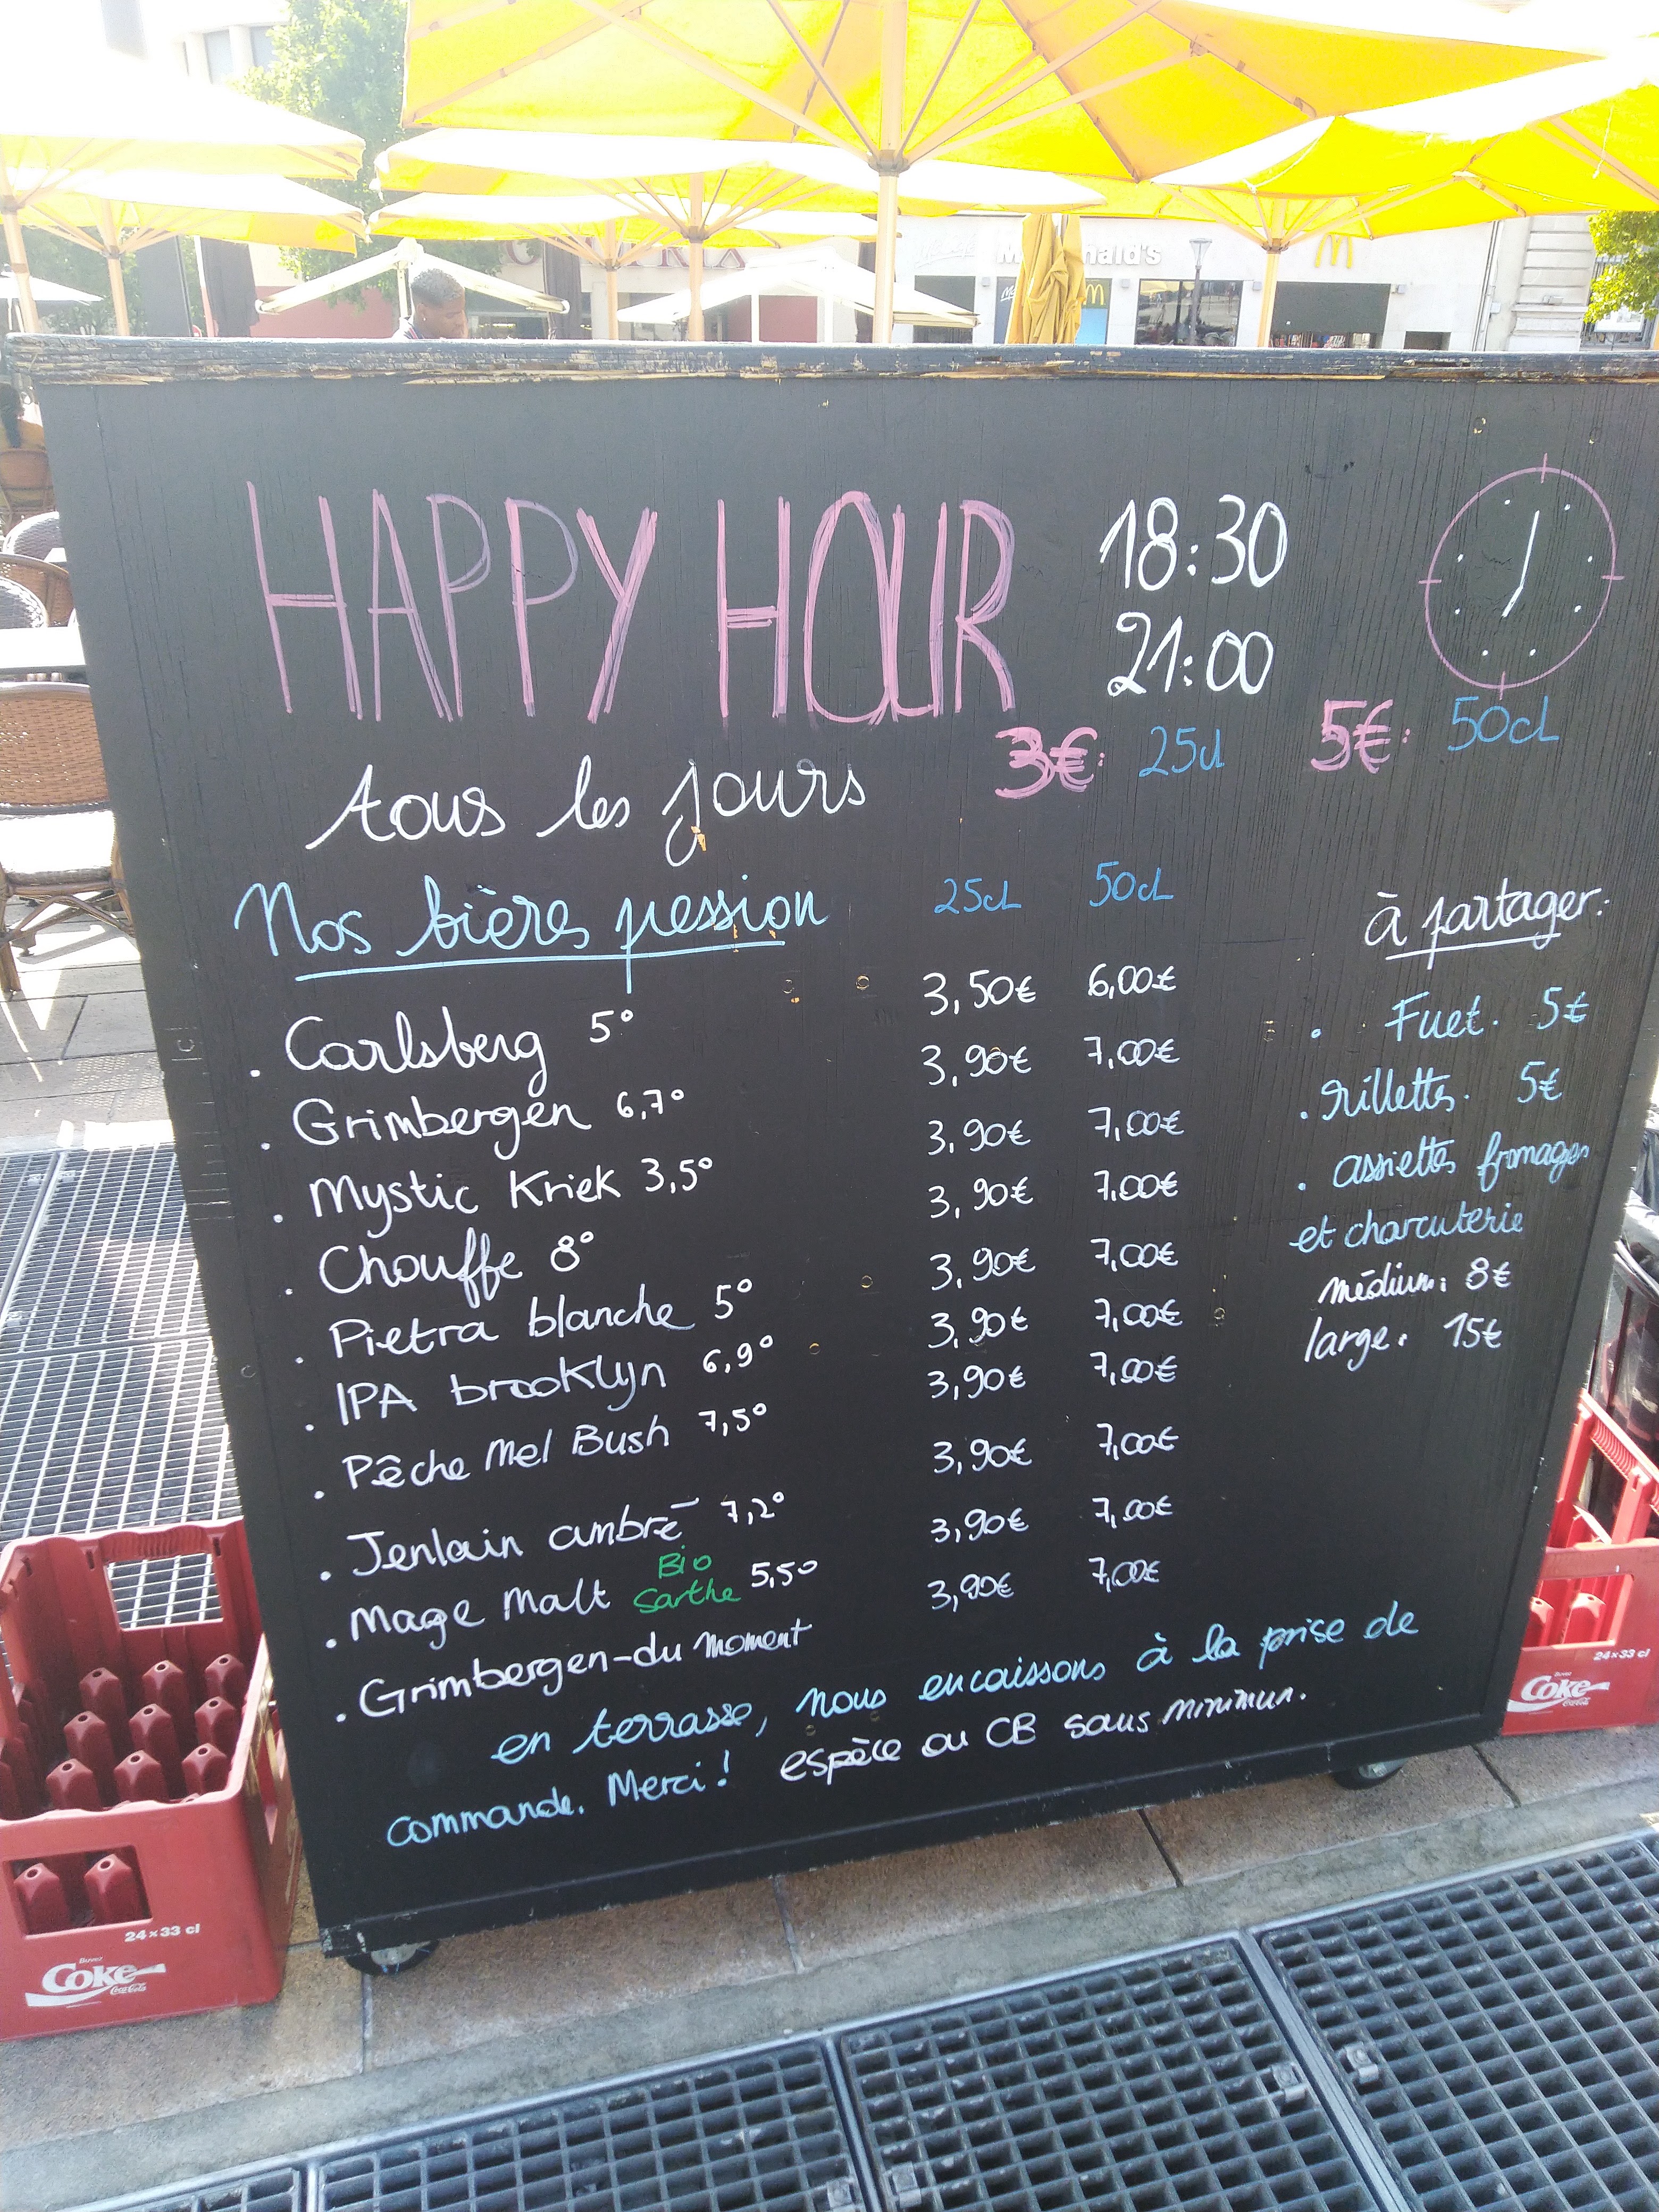 McDonald's
HAPPY HOUR 18:30
21:00
tous les jours 3€: 25cl 5€: 50cl
Nos bières pession 25cl 50cl
. Carlsberg 5° 3,50€ 6,00€
. Grimbergen 6,7° 3,90€ 7,00€
. Mystic Kriek 3,5° 3,90€ 7,00€
. Chouffe 8° 3,90€ 7,00€
. Pietra blanche 5° 3,90€ 7,00€
. IPA brooklyn 6,9° 3,90€ 7,00€
. Pêche Mel Bush 7,5° 3,90€ 7,00€
. Jenlain ambré 7,2° 3,90€ 7,00€
. Mage Malt Bio Sarthe 5,5° 3,90€ 7,00€
. Grimbergen-du moment 3,90€ 7,00€
à partager:
. Fuet. 5€
. rillettes. 5€
. assiettes fromages
et charcuterie
médium: 8€
large. 15€
en terrasse, nous encaissons à la prise de
commande. Merci! espèce ou CB sans minimun.
24×33 cl
Buvez
Coke
Coca-Cola
24×33 cl
Buvez
Coke
Coca-Cola